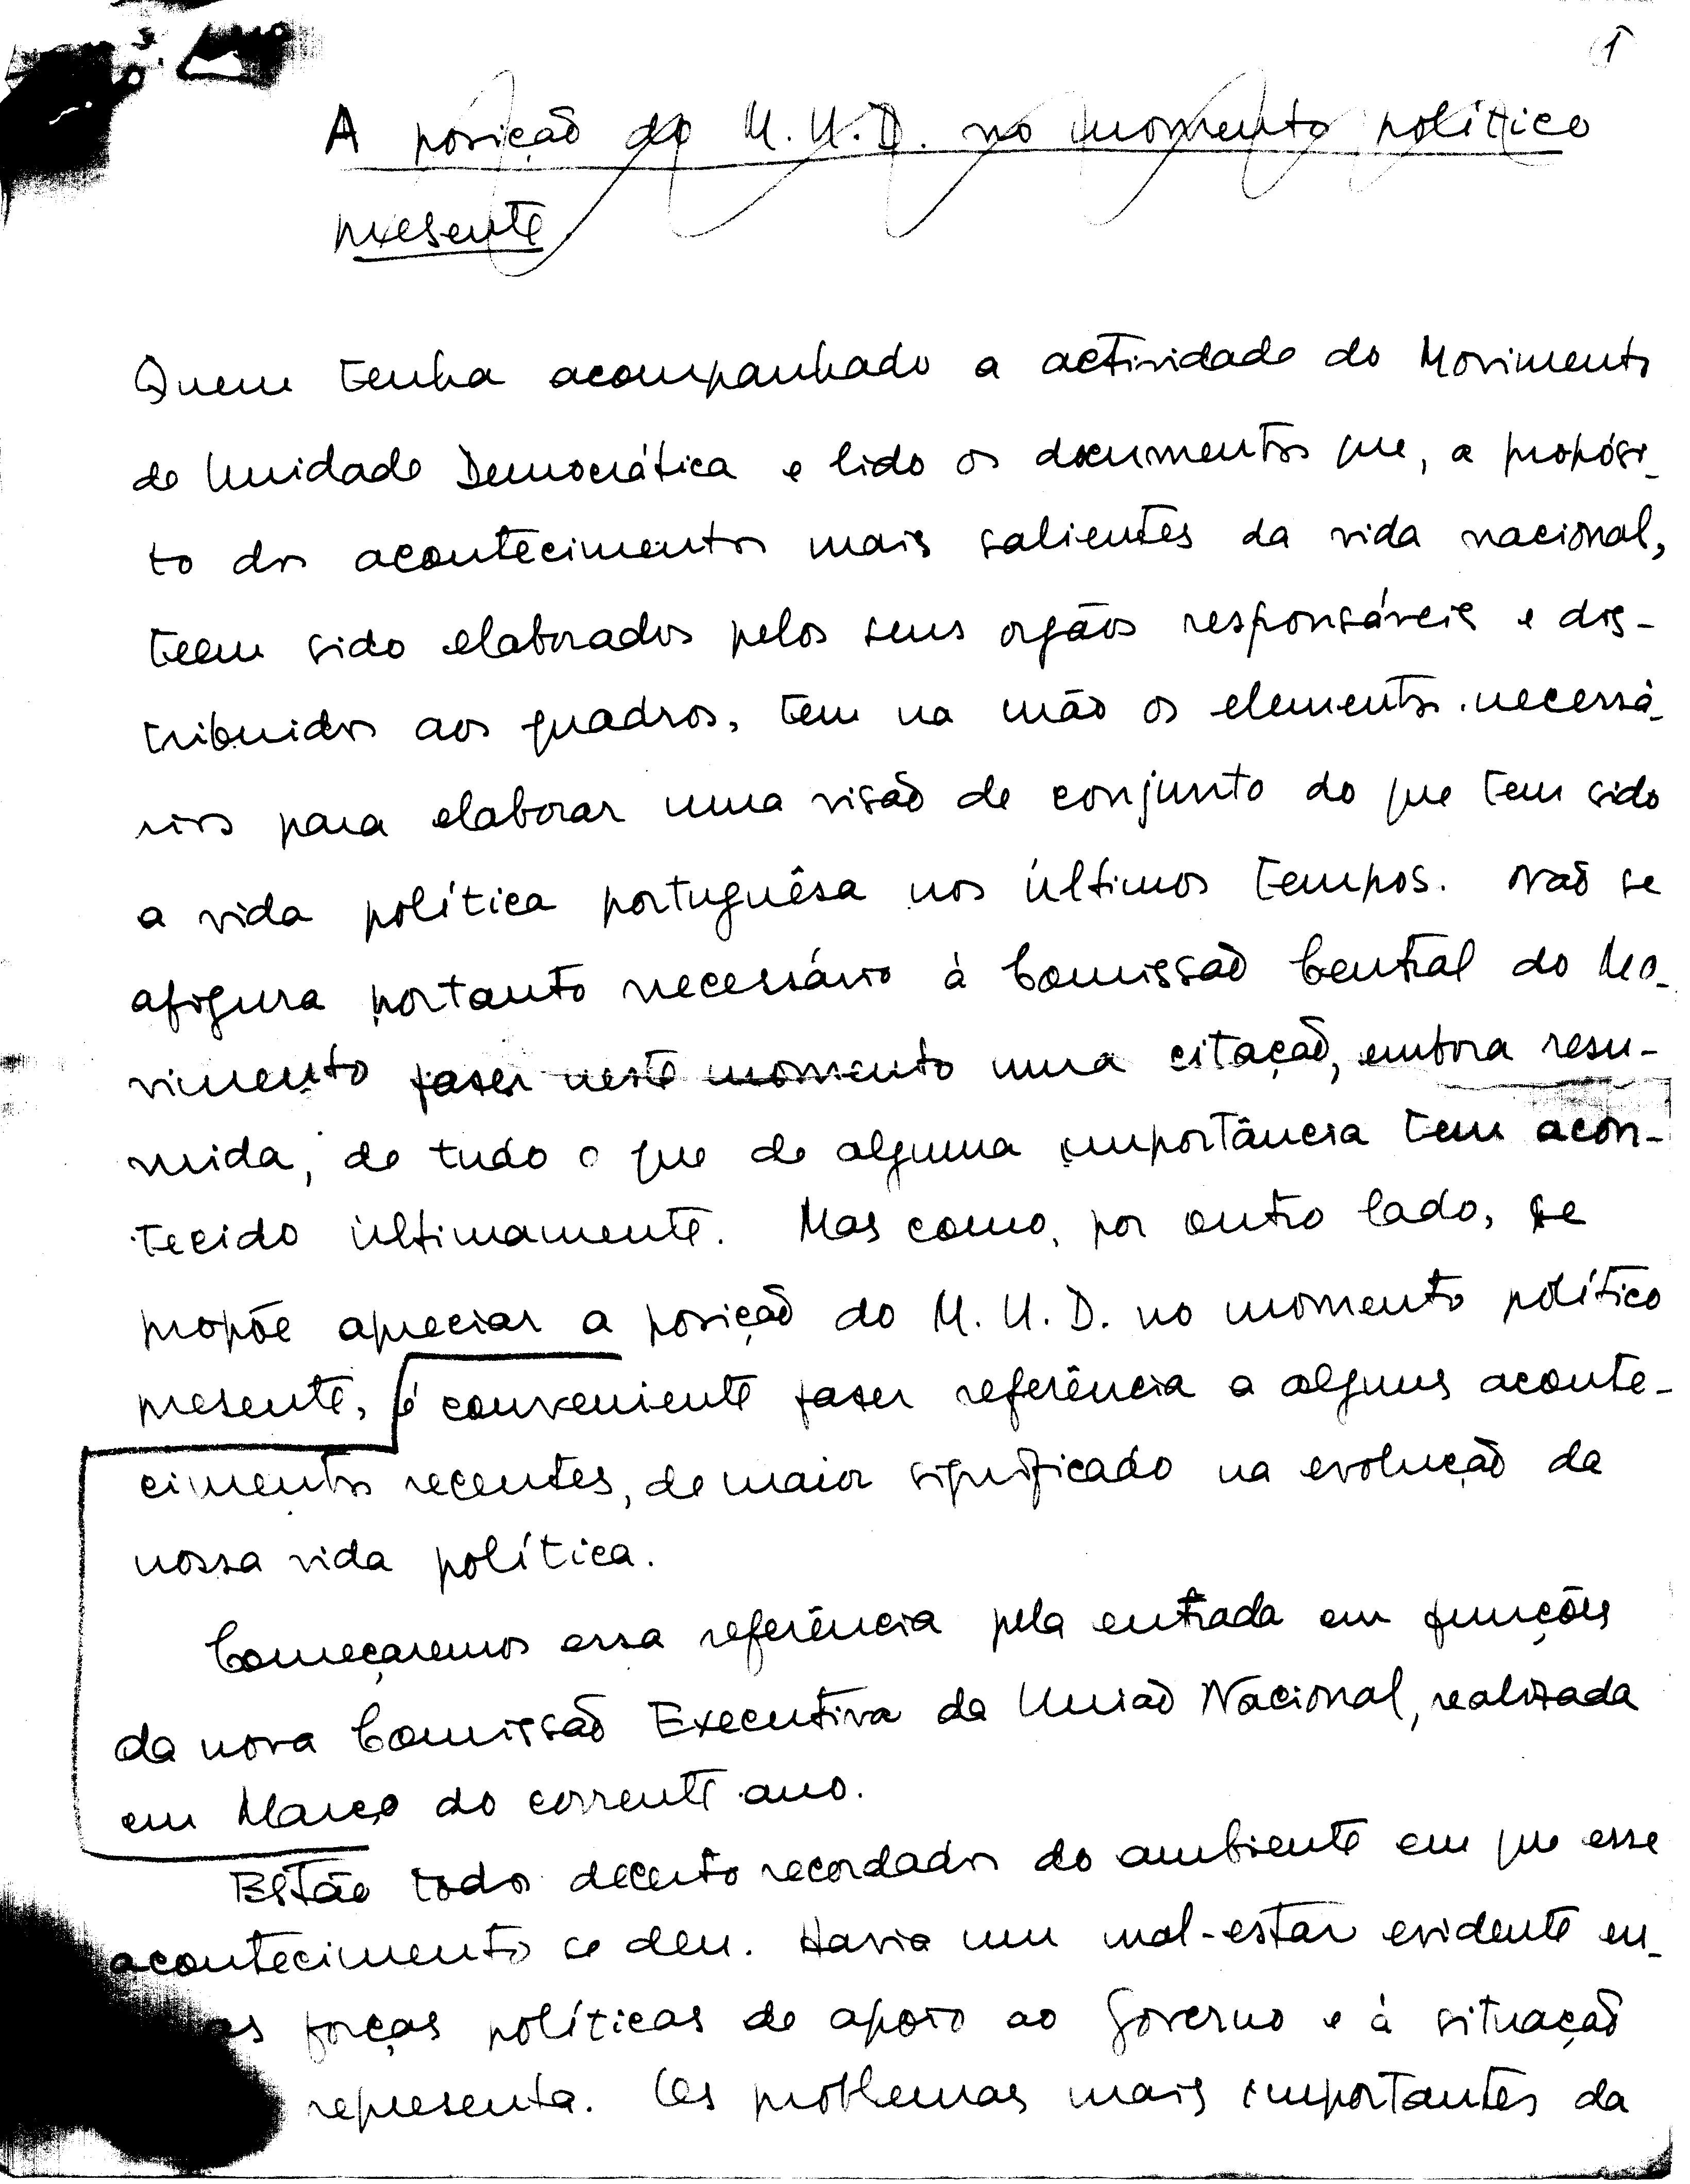 1
A posição do M.U.D. no momento político
presente
Quem tenha acompanhado a actividade do Movimento
de Unidade Democrática e lido os documentos que, a propósi-
to dos acontecimentos mais salientes da vida nacional,
teem sido elaborados pelos seus orgãos responsáveis e dis-
tribuidos aos quadros, tem na mão os elementos necessá-
rios para elaborar uma visão de conjunto do que tem sido
a vida política portuguêsa nos últimos tempos. Não se
afigura portanto necessário à Comissão Central do Mo-
vimento fazer neste momento uma citação, embora resu-
mida, de tudo o que de alguma importância tem acon-
tecido ùltimamente. Mas como, por outro lado, se
propõe apreciar a posição do M.U.D. no momento político
presente, é conveniente fazer referência a alguns aconte-
cimentos recentes, de maior significado na evolução da
nossa vida política.
Começaremos essa referência pela entrada em funções
da nova Comissão Executiva da União Nacional, realizada
em Março do corrente ano.
Estão todos decerto recordados do ambiente em que esse
acontecimento se deu. Havia um mal-estar evidente en-
as forças políticas de apoio ao Governo e à situação
representa. Os problemas mais importantes da